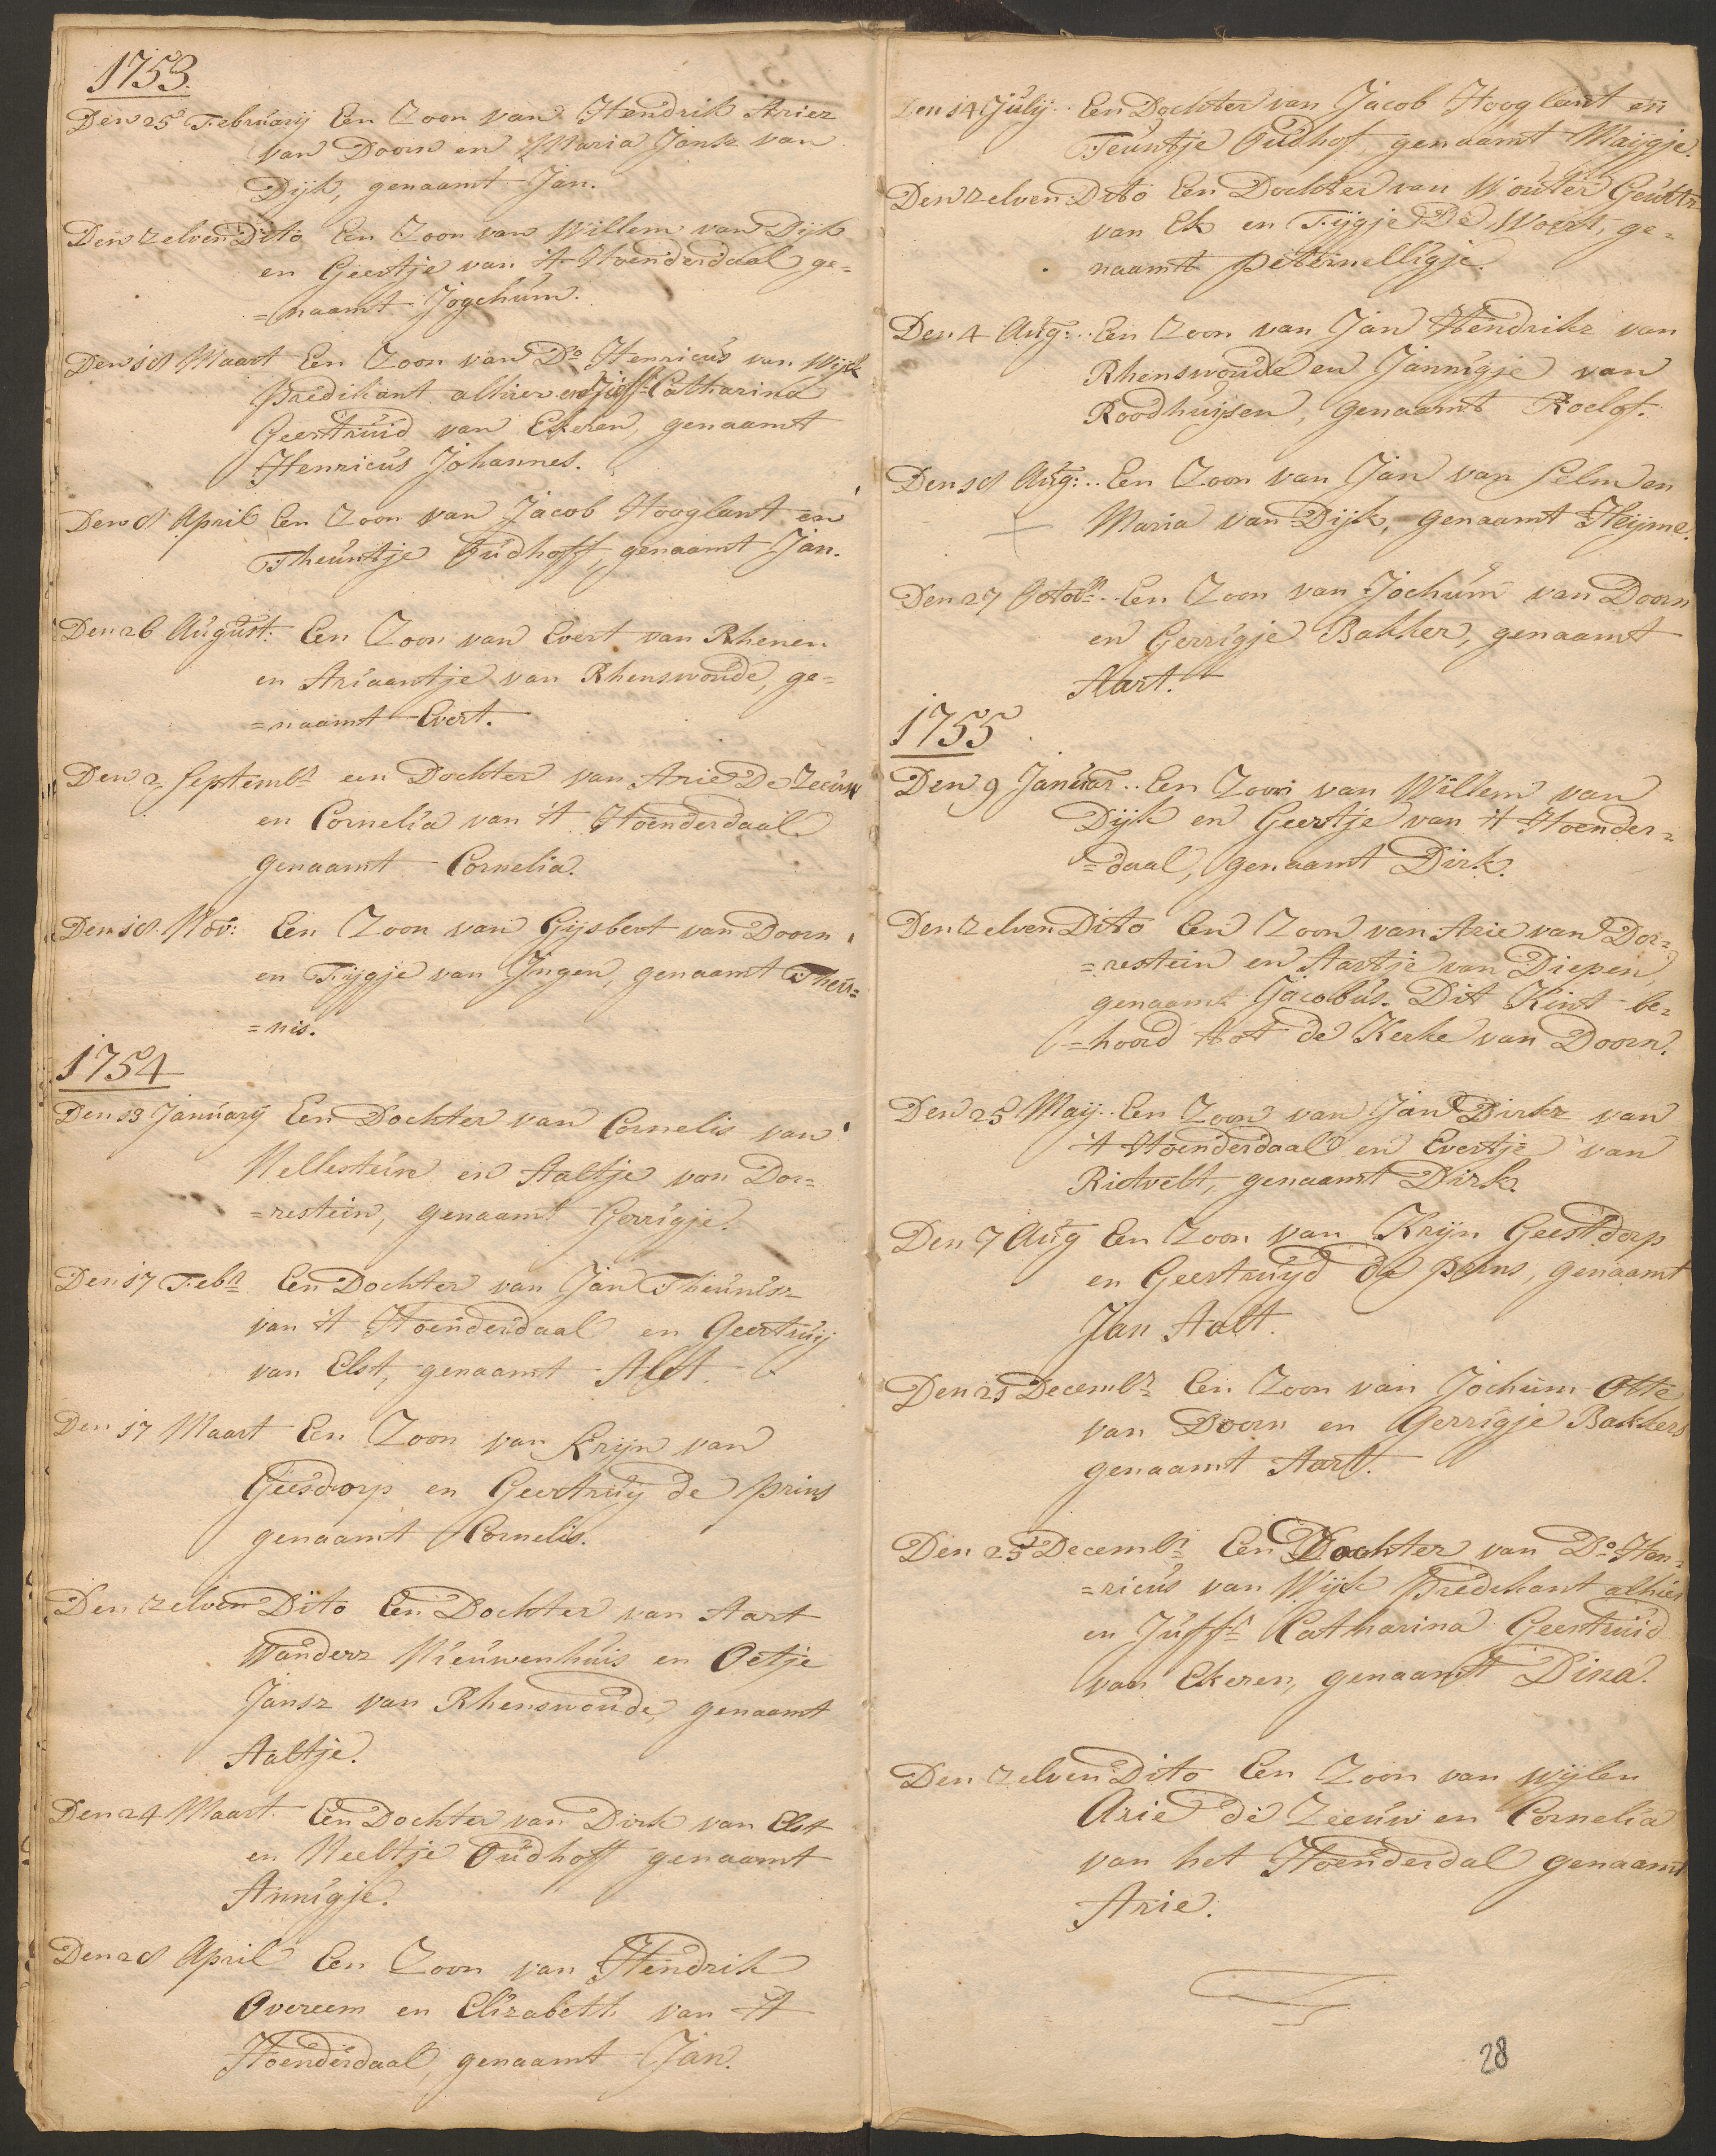 1753.
Den 25 Februarij Een Zoon van Hendrik Ariez
van Doorn en Maria Jansz van
Dijk, genaamt Jan.
Den zelven Dito Een Zoon van Willem van Dijk
en Geertje van 't Hoenderdaal ge=
=naamt Jogchum.
Den 18 Maart Een Zoon van Do. Henricus van Wijck
Predikant alhier en Juff. Catharina
Geertruid van Ekeren, genaamt
Henricus Johannes.
Den 8 April Een Zoon van Jacob Hooglant en
Theuntje Oudhoff, genaamt Jan.
Den 26 August: Een Zoon van Evert van Rhenen
en Ariaantje van Rhenswoude, ge=
=naamt Evert.
Den 2 Septembr een Dochter van Arie De Zeeuw
en Cornelia van 't Hoenderdaal
genaamt Cornelia.
Den 18 Nov: Een Zoon van Gijsbert van Doorn
en Tijgje van Ingen, genaamt Theu=
=nis.
1754
Den 13 January Een Dochter van Cornelis van
Nellestein en Aaltje van Dor=
=restein, genaamt Gerrigje.
Den 17 Febr Een Dochter van Jan Theunisz
van 't Hoenderdaal en Geertruij
van Elst, genaamt Alet.
Den 17 Maart Een Zoon van Krijn van
Geesdorp en Geertruij de Prins
genaamt Cornelis.
Den zelven Dito Een Dochter van Aart
Wanderz Nieuwenhuis en Oetje
Jansz van Rhenswoude, genaamt
Aaltje.
Den 24 Maart. Een Dochter van Dirk van Elst
en Neeltje Oudhoff genaamt
Annigje.
Den 28 April Een Zoon van Hendrik
Overeem en Elizabeth van 't
Hoenderdaal, genaamt Jan.
Den 14 July.. Een Dochter van Jacob Hooglant en
Teuntje Oudhof, genaamt Maijgje.
Den zelven Dito Een Dochter van Wouter Geurtz
van Ek en Tijgje De Woert, ge=
naamt Peternelligje.
Den 4 Aug:.. Een Zoon van Jan Hendrikz van
Rhenswoude en Jannigje van
Roodhuijsen, genaamt Roelof.
Den 18 Aug:.. Een Zoon van Jan van Selm en
Maria van Dijk, genaamt Heijme.
Den 27 Octobr.. Een Zoon van Jochum van Doorn
en Gerrigje Bakker, genaamt
Aart.
1755
Den 9 Januar.. Een Zoon van Willem van
Dijk en Geertje van 't Hoender=
=daal, genaamt Dirk.
Den zelven Dito Een Zoon van Arie van Dor=
=restein en Aartje van Diepen,
genaamt Jacobus. Dit Kint be=
=hoord tot de Kerke van Doorn.
Den 25 Maij.. Een Zoon van Jan Dirkz van
't Hoenderdaal en Evertje van
Rietvelt, genaamt Dirk.
Den 7 Aug Een Zoon van Krijn Geestdorp
en Geertruijd de Prins, genaamt
Jan Aalt.
Den 21 Decembr Een Zoon van Jochum Otte
van Doorn en Gerrigje Bakkers
genaamt Aart.
Den 25 Decembr Een Dochter van Do. Hen=
=ricus van Wijk Predikant alhier
en Juffr Catharina Geertruid
van Ekeren, genaamt Dina.
Den zelven Dito Een Zoon van wijlen
Arie de Zeeuw en Cornelia
van het Hoenderdal genaamt
Arie.
28